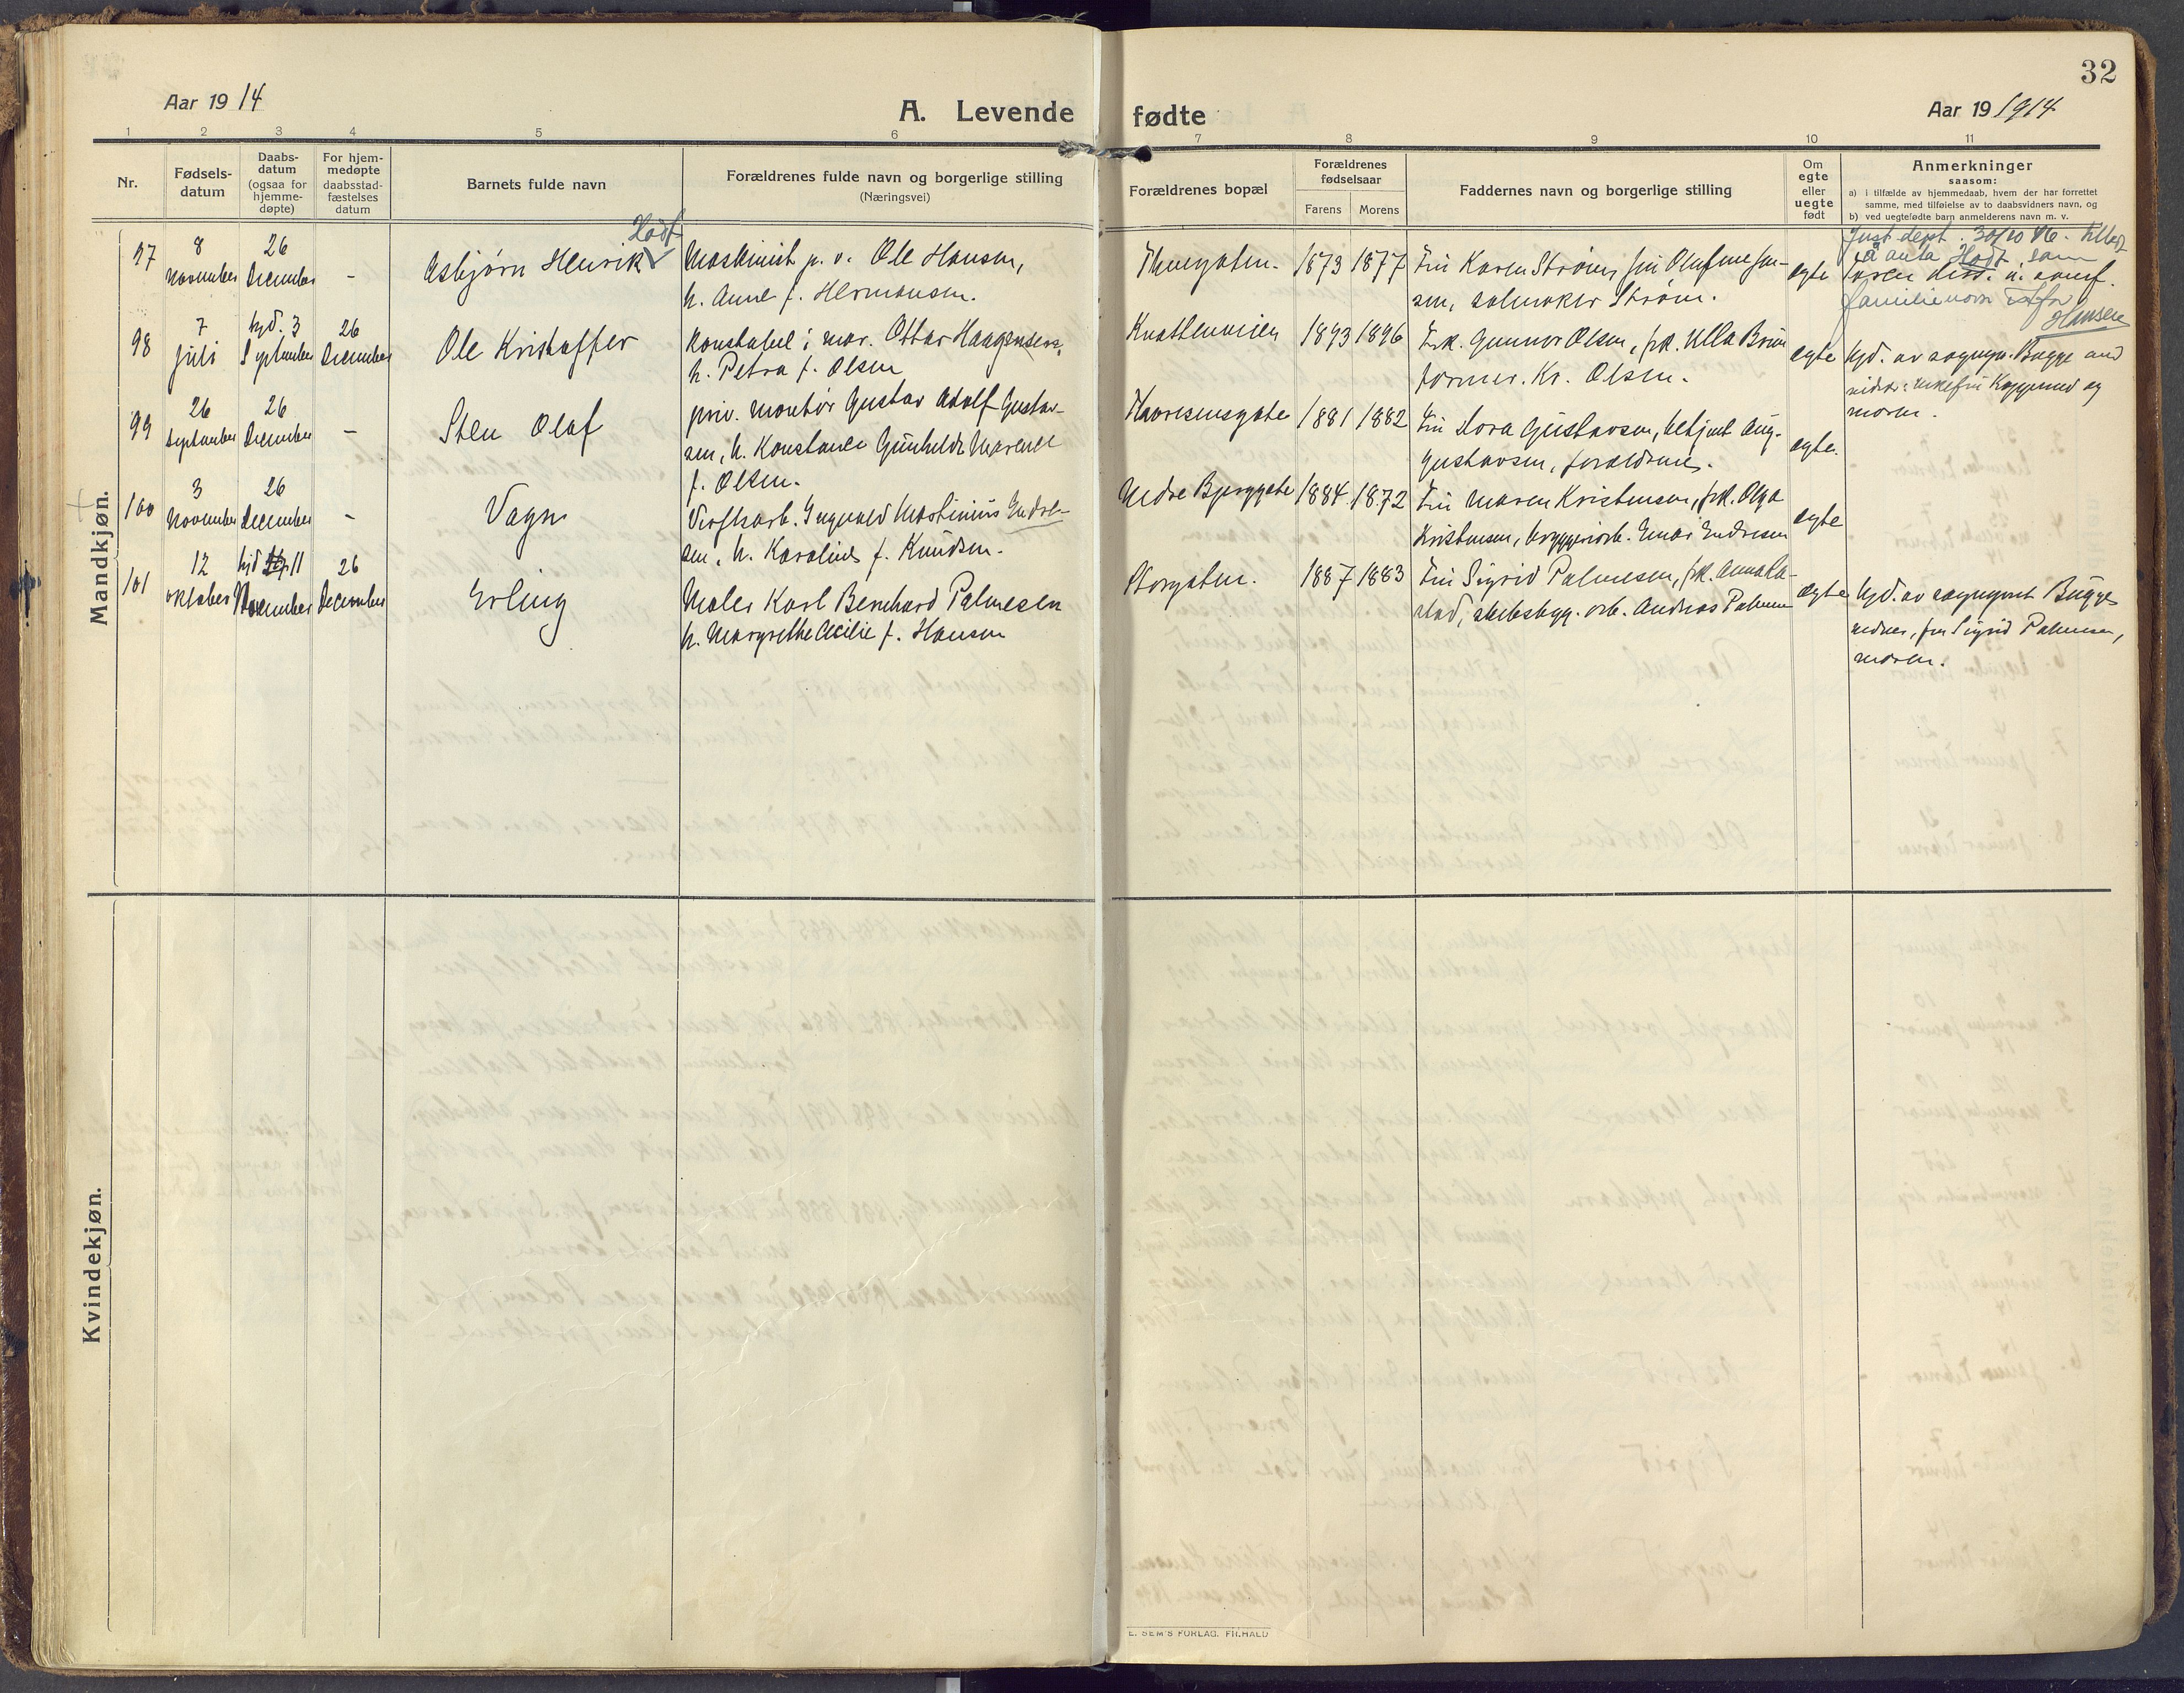 32
Aar 19 14
A. Levende fødte
Aar 19 1914
1 2 3 4 5 6 7 8 9 10 11
Nr.
Fødsels-
datum
Daabs-
datum
(ogsaa for
hjemme-
døpte)
For hjem-
medøpte
daabsstad-
fæstelses
datum
Barnets fulde navn
Forældrenes fulde navn og borgerlige stilling
(Næringsvei)
Forældrenes bopæl
Forældrenes
fødselsaar
Farens
Morens
Faddernes navn og borgerlige stilling
Om
egte
eller
uegte
født
Anmerkninger
saasom:
a) i tilfælde av hjemmedaab, hvem der har forrettet
samme, med tilføielse av to daabsvidners navn, og
b) ved uegtefødte barn anmelderens navn m. v.
Mandkjøn.
97
8
November
26
December
-
Hodt
Asbjørn Henrik
Maskinist p. v. Ole Hansen,
h. Anne f. Hermansen.
1873
1877
Fru Karen Strøm, fru Olufine Jen-
sen, seilmaker Strøm.
egte
Just. dept. 30/10 46
å anta Hodt som
familienavn istfor
Hansen
98
7
Juli
hjd. 3
September
26
December
Ole Kristoffer
Konstabel i mar. Ottar Haagensen,
h. Petra f. Olsen
1893
1896
Frk. Gunnor Olsen, frk. Ulla Bruun
former. Kr. Olsen.
egte
hjd. av sognepr. Bugge
moren.
99
26
September
26
December
-
Sten Olaf
priv. montør Gustav Adolf Gustav-
sen, h. Konstance Gunhilde Marene
f. Olsen.
1881
1882
Fru Dora Gustavsen, betjent Aug.
Gustavsen, forældrene.
egte.
100
3
November
26
December
-
Vagn
Verftsarb. Ingvald Martinius Endre-
sen, h. Karoline f. Knudsen.
Nedre Bjerggate
1884
1872
Fru Maren Kristensen, frk. Olga
Kristensen, bryggeriarb. Einar Endresen
egte
101
12
oktober
hjd 11
November
26
December
Erling
Maler Karl Bernhard Palmesen
h. Margrethe Cecilie f. Hansen
Storgaten.
1887
1883
Fru Sigrid Palmesen, frk. Anna Ra-
stad, skibsbygg. arb. Andreas Palmesen
egte
hjd. av sogneprest Bugge
vidner, fru Sigrid Palmesen,
moren.
Kvindekjøn.
E. SEM'S FORLAG. FR.HALD